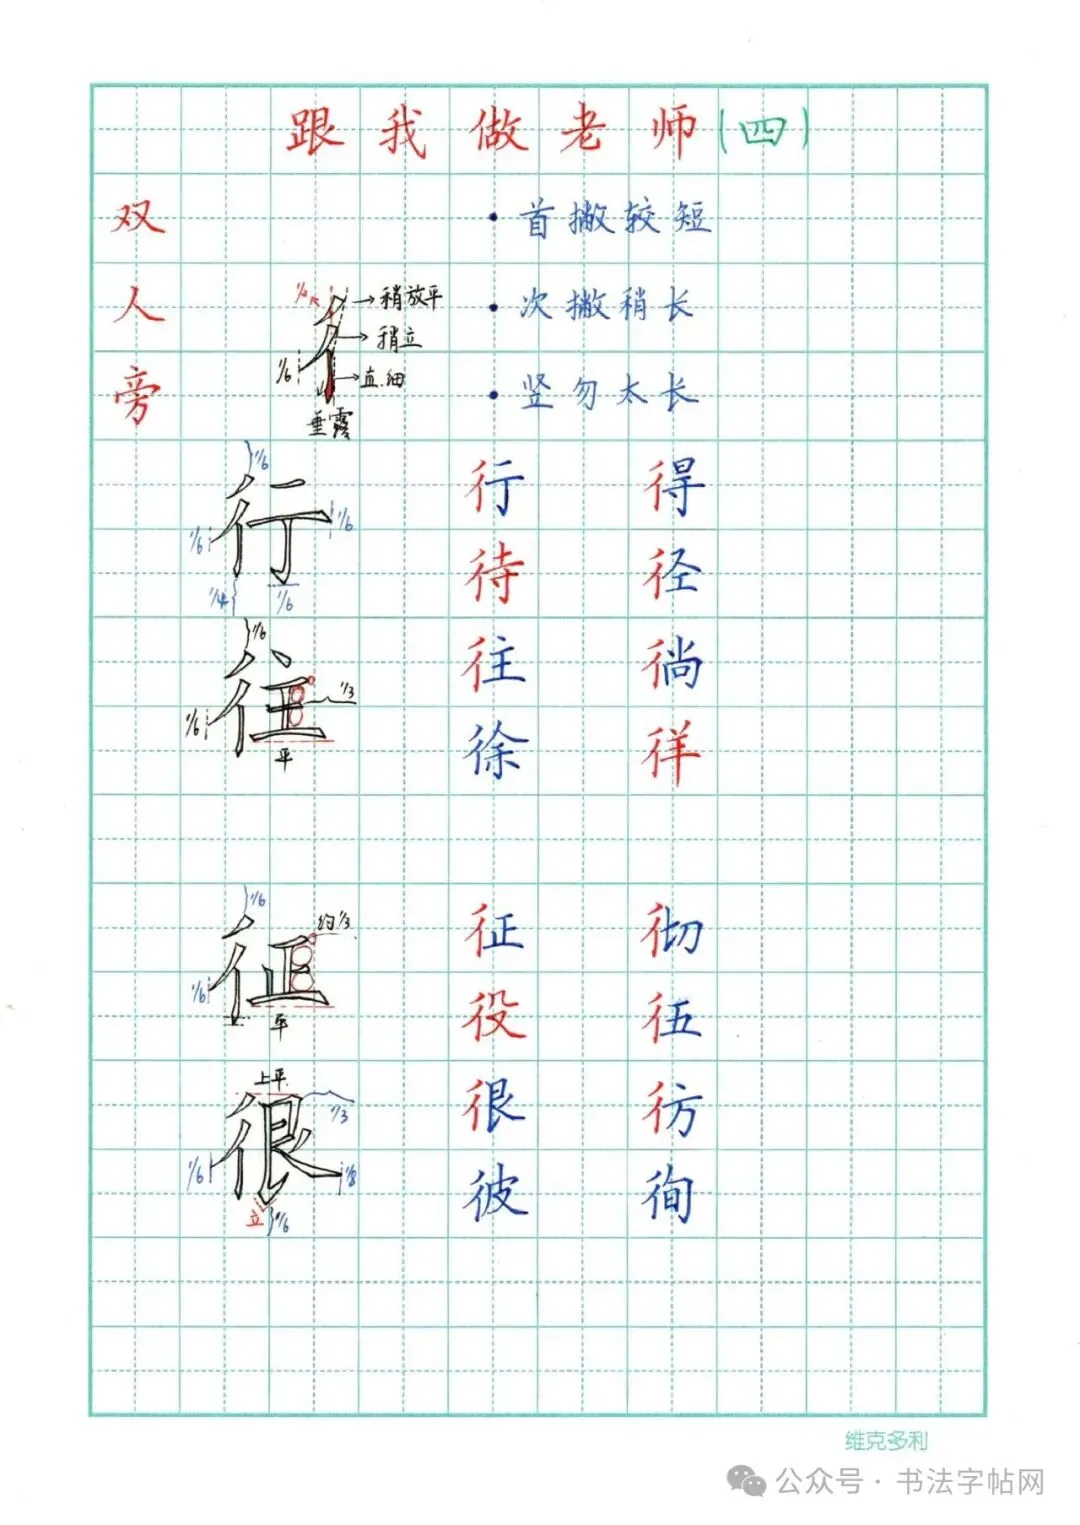 跟我做老师(四)
双人旁
·首撇较短
·次撇稍长
·竖勿太长
1/2
稍放平
稍立
直.细
1/6
垂露
1/6
行
1/6
1/6
1/4
1/6
行 得
待 径
1/6
往
1/3
1/6
平
往 徜
徐 徉
1/6
约1/3
征
1/6
平
征 彻
役 伍
上平
很
1/3
1/6
1/8
立
1/6
很 彷
彼 徇
维克多利
公众号·书法字帖网